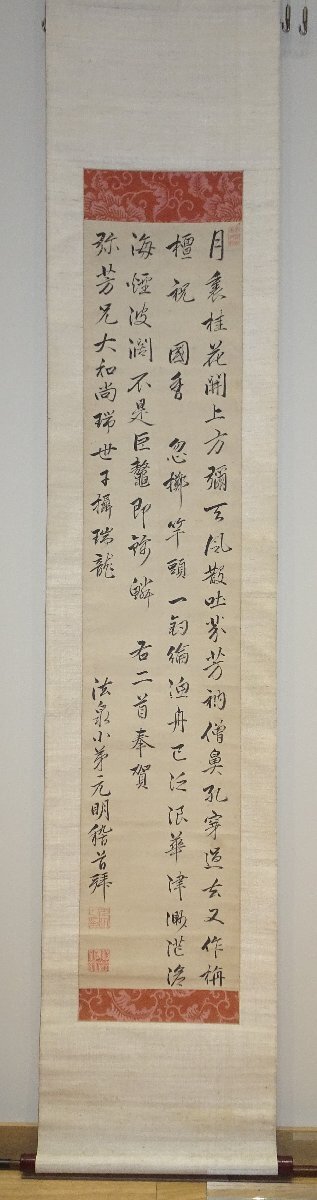 月裏桂花開上方彌天風散吐芬芳衲僧鼻孔穿過去又作栴
檀祝國香 忽擲竿頭一釣綸漁舟已泛浪華津渺茫滄
海煙波濶不是巨鼇即錦鱗 右二首奉賀
弥芳兄大和尚瑞世于攝瑞龍
法泉小弟元明稽首拜